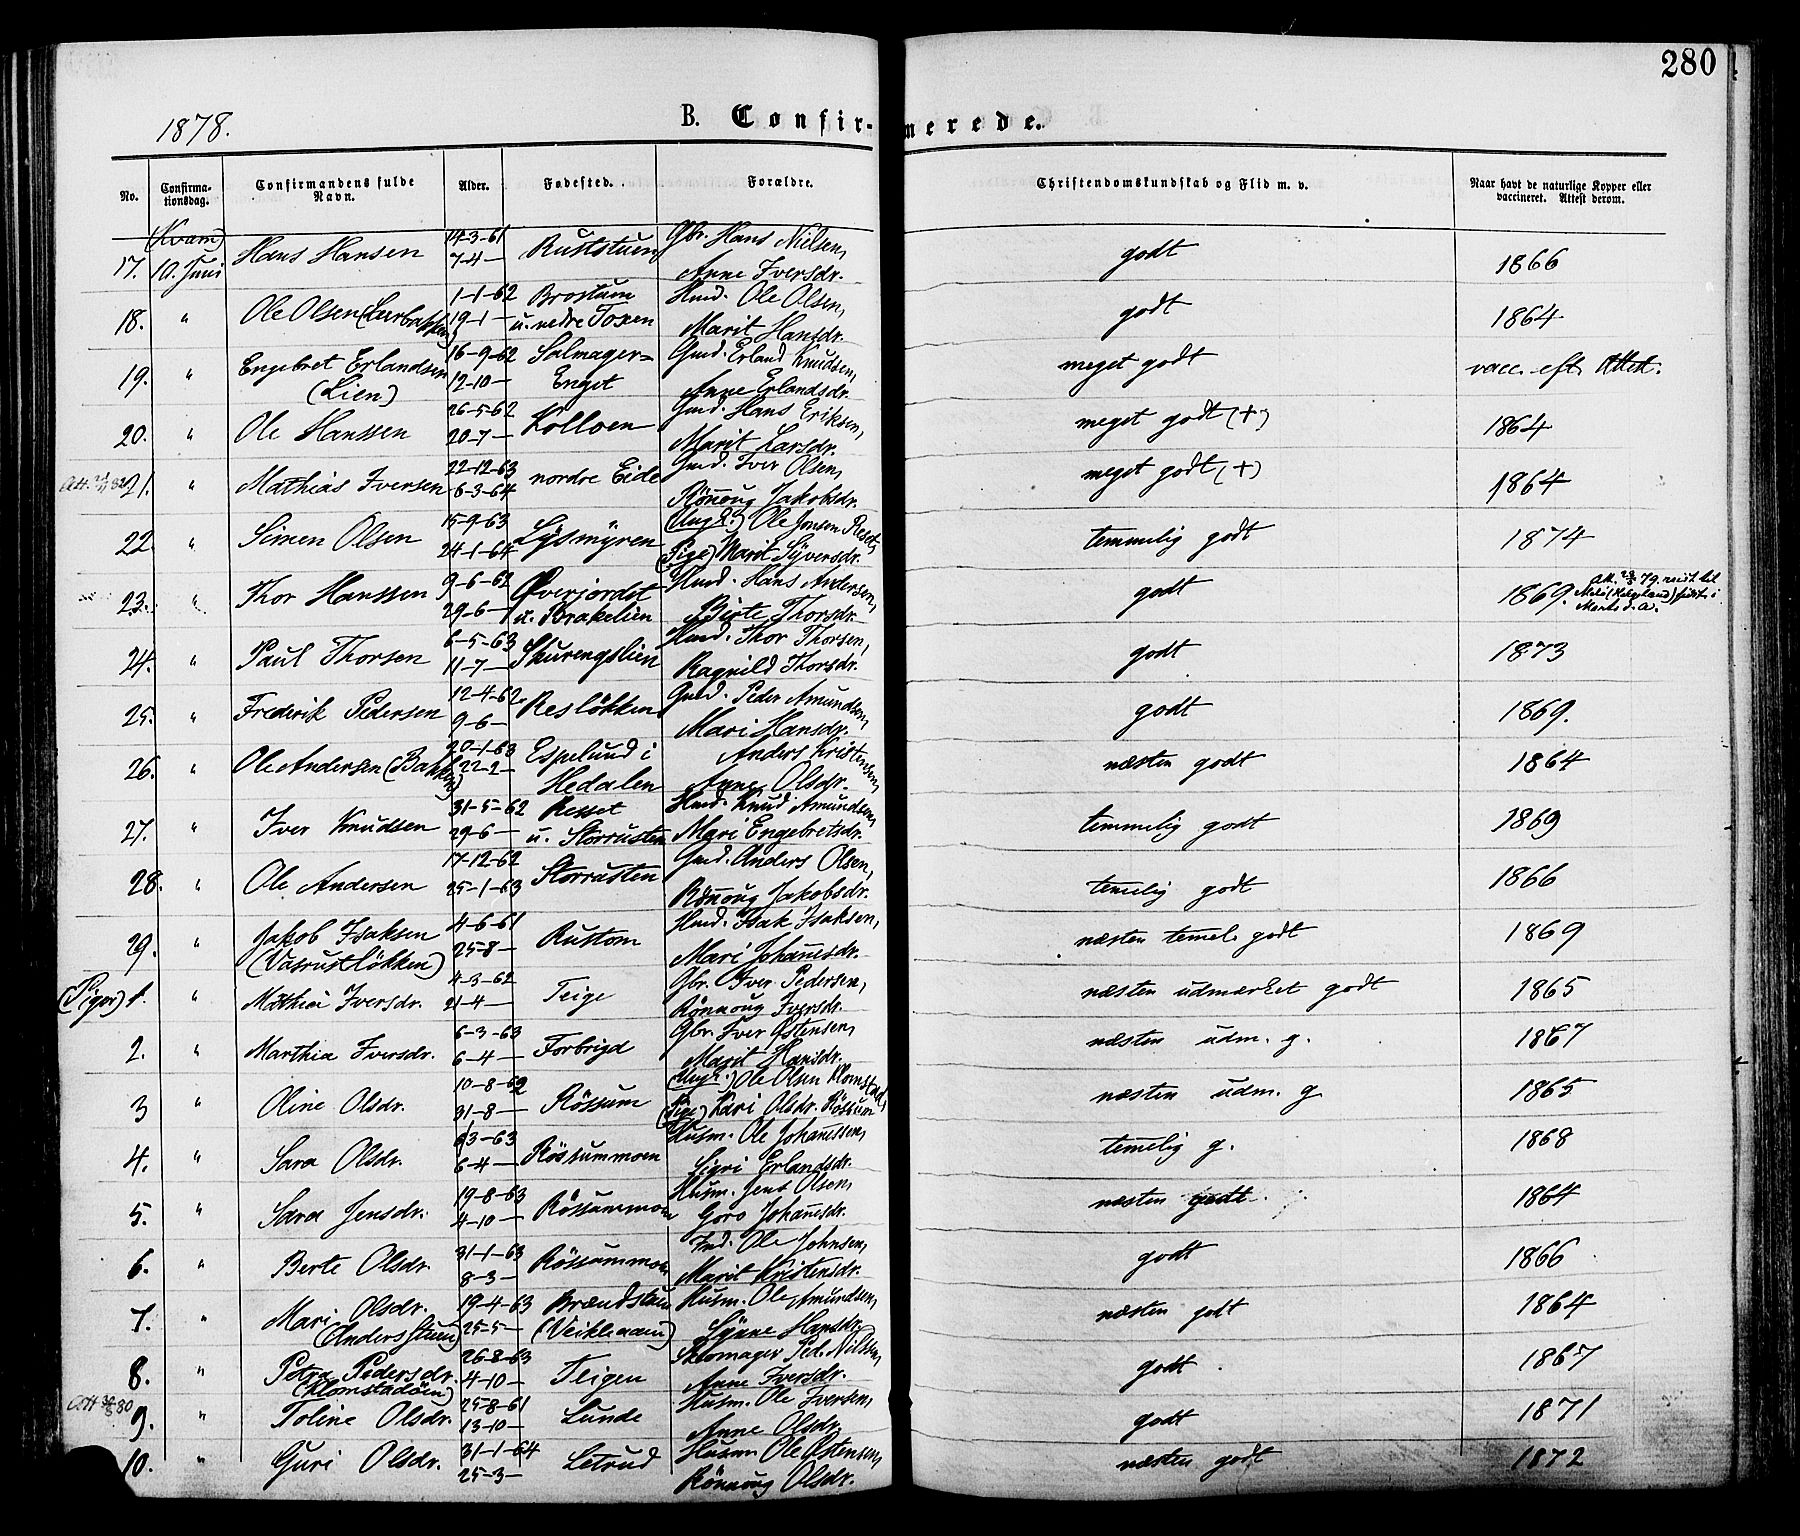 280
1878.
B. Confir-merede.
No. Confirma-tionsdag. Confirmandens fulde Navn. Alder. Fødested. Forældre. Christendomskundskab og Flid m. v. Naar havt de naturlige Kopper eller vaccineret. Attest derom.
(Kvam) Hans Hansen 14-3-61 Ruststuen Gbr. Hans Nielsen, godt
17. 10. Juni 7-4- Anne Iversdr. 1866
18. " Ole Olsen 1-1-62 Brostum Husd. Ole Olsen, godt
19-1- u. nedre Toxen Marit Hansdr. 1864
19. " Engebret Erlandsen 16-9-62 Salmager- Gmd. Erland Knudsen, meget godt vacc. eft. Attest.
(Lien) 12-10- Enget Anne Erlandsdr.
20. " Ole Hanssen 26-5-62 Kolloen Gmd. Hans Eriksen, meget godt (+) 1864
20-7- Marit Larsdr.
21. " Mathias Iversen 22-12-63 nordre Eide Gmd. Iver Olsen, meget godt (+) 1864
6-3-64 Rönnoug Jakobsdr.
22. " Simen Olsen 15-9-63 Lysmyren (Ungk.) Ole Jonsen Reset, temmelig godt 1874
24-1-64 (Pige) Marit Syversdr.
23. " Thor Hanssen 9-6-62 Øverjordet Husd. Hans Andersen, godt 1869.
29-6- u. Brakelien Birte Thorsdr.
24. " Paul Thorsen 6-5-63 Skurengslien Husd. Thor Thorsen, godt 1873
11-7- Ragnild Thorsdr.
25. " Frederik Pedersen 12-4-62 Resløkken Gmd. Peder Amundsen, godt 1869.
9-6- Mari Hansdr.
26. " Ole Andersen (Bakken) 20-1-63 Espelund i Anders Kristensen, næsten godt 1864
22-2- Hedalen Anne Olsdr.
27. " Iver Knudsen 31-5-62 Resset Husd. Knud Amundsen, temmelig godt 1869
29-6- u. Storrusten Mari Engebretsdr.
28. " Ole Andersen 17-12-62 Storrusten Gmd. Anders Olsen, temelig godt 1866
25-1-63 Rönnoug Jakobsdr.
29. " Jakob Isaksen 4-6-61 Rustom Husd. Isak Isaksen, næsten temel. godt 1869
(Vasrustløkken) 25-8- Mari Johannesdr.
(Piger) 1. " Mathia Iversdr. 4-3-62 Teige Gbr. Iver Pedersen, næsten udmærket godt 1865
21-4- Rönnoug Iversdr.
2. " Marthia Iversdr. 6-3-63 Forbrigd Gbr. Iver Østensen, næsten udm. g. 1867
6-4- Marit Hansdr.
3 " Oline Olsdr. 10-8-62 Røssum (Ungk.) Ole Olsen Klomstad, næsten udm. g 1865
31-8- (Pige) Kari Olsdr. Røssum
4. " Sara Olsdr. 3-63 Røssummoen Husm. Ole Johanessen, temelig g. 1868
6-4- Sigri Erlandsdr.
5. " Sara Jensdr. 19-8-63 Røssummoen Husm. Jens Olsen, næsten godt 1864
4-10- Goro Johanesdr.
6. " Berte Olsdr. 31-1-63 Røssummoen Ind. Ole Johnsen, godt 1866
8-3- Marit Kristensdr.
7. " Mari Olsdr. 19-4-63 Brændstuen Husm. Ole Amundsen, næsten godt 1864
(Andersstuen) 25-5- (Veiklemoen) Synne Hansdr.
8. " Petra Pedersdr. 26-8-63 Teigen Skomager Ped. Nilssen, godt 1867
(Klomstadøien) 4-10- Anne Iversdr.
9. " Toline Olsdr. 25-8-61 Lunde Husm. Ole Iversen, godt 1871
13-10- Anne Olsdr.
10. " Guri Olsdr. 31-1-64 Letrud Husm Ole Østensen, næsten godt 1872
25-3- Rönnoug Olsdr.